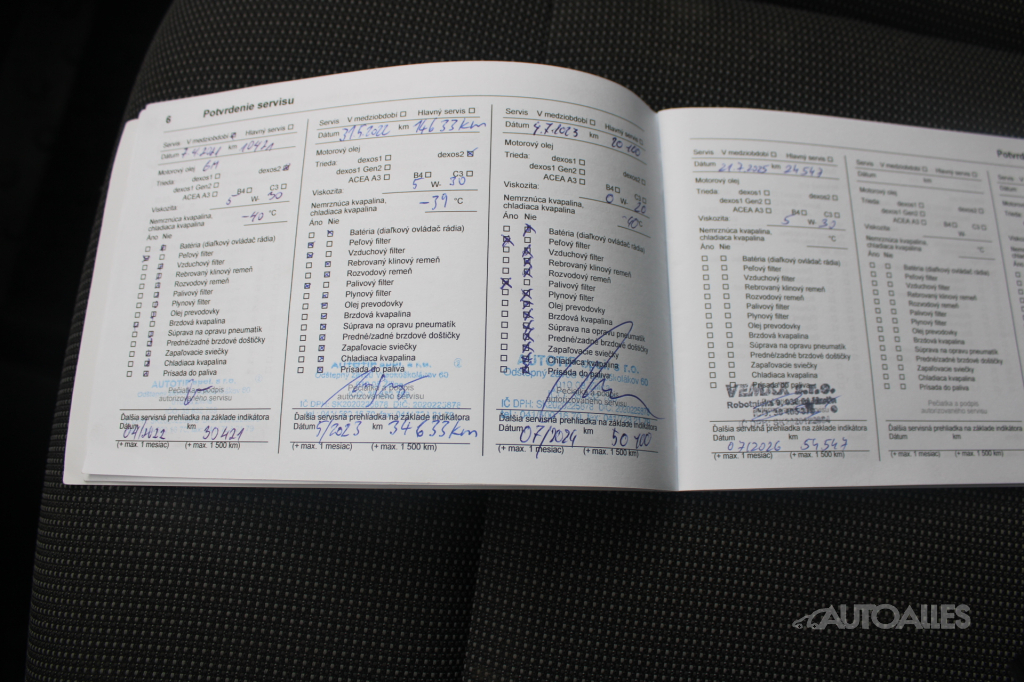 6 Potvrdenie servisu
Servis V medziobdobí Hlavný servis
Dátum 7.4.2021 km 10421
Motorový olej GM
Trieda: dexos1 dexos2
dexos1 Gen2
ACEA A3 B4 C3
Viskozita: 5 W- 30
Nemrznúca kvapalina,
chladiaca kvapalina -40 °C
Áno Nie
Batéria (diaľkový ovládač rádia)
Peľový filter
Vzduchový filter
Rebrovaný klinový remeň
Rozvodový remeň
Palivový filter
Plynový filter
Olej prevodovky
Brzdová kvapalina
Súprava na opravu pneumatik
Predné/zadné brzdové doštičky
Zapaľovacie sviečky
Chladiaca kvapalina
Prísada do paliva
Pečiatka a podpis
autorizovaného servisu
Ďalšia servisná prehliadka na základe indikátora
Dátum km
04/2022 30421
(+ max. 1 mesiac) (+ max. 1 500 km)
Servis V medziobdobí Hlavný servis
Dátum 31.5.2022 km 14633km
Motorový olej
Trieda: dexos1 dexos2
dexos1 Gen2
ACEA A3 B4 C3
Viskozita: 5 W- 30
Nemrznúca kvapalina,
chladiaca kvapalina -39 °C
Áno Nie
Batéria (diaľkový ovládač rádia)
Peľový filter
Vzduchový filter
Rebrovaný klinový remeň
Rozvodový remeň
Palivový filter
Plynový filter
Olej prevodovky
Brzdová kvapalina
Súprava na opravu pneumatik
Predné/zadné brzdové doštičky
Zapaľovacie sviečky
Chladiaca kvapalina
Prísada do paliva
Pečiatka a podpis
autorizovaného servisu
Ďalšia servisná prehliadka na základe indikátora
Dátum 5/2023 km 34633km
(+ max. 1 mesiac) (+ max. 1 500 km)
Servis V medziobdobí Hlavný servis
Dátum 4.7.2023 km 20100
Motorový olej
Trieda: dexos1 dexos2
dexos1 Gen2
ACEA A3 B4 C3
Viskozita: 0 W- 20
Nemrznúca kvapalina,
chladiaca kvapalina -40 °C
Áno Nie
Batéria (diaľkový ovládač rádia)
Peľový filter
Vzduchový filter
Rebrovaný klinový remeň
Rozvodový remeň
Palivový filter
Plynový filter
Olej prevodovky
Brzdová kvapalina
Súprava na opravu pneumatik
Predné/zadné brzdové doštičky
Zapaľovacie sviečky
Chladiaca kvapalina
Prísada do paliva
Ďalšia servisná prehliadka na základe indikátora
Dátum 07/2024 km 50100
(+ max. 1 mesiac) (+ max. 1 500 km)
Servis V medziobdobí Hlavný servis
Dátum 21.7.2025 km 24547
Motorový olej
Trieda: dexos1 dexos2
dexos1 Gen2
ACEA A3 B4 C3
Viskozita: 5 W- 30
Nemrznúca kvapalina,
chladiaca kvapalina °C
Áno Nie
Batéria (diaľkový ovládač rádia)
Peľový filter
Vzduchový filter
Rebrovaný klinový remeň
Rozvodový remeň
Palivový filter
Plynový filter
Olej prevodovky
Brzdová kvapalina
Súprava na opravu pneumatik
Predné/zadné brzdové doštičky
Zapaľovacie sviečky
Chladiaca kvapalina
Prísada do paliva
Ďalšia servisná prehliadka na základe indikátora
Dátum 07/2026 km 54.547
(+ max. 1 mesiac) (+ max. 1 500 km)
Servis V medziobdobí Hlavný servis
Dátum km
Motorový olej
Trieda: dexos1 dexos2
dexos1 Gen2
ACEA A3 B4 C3
Viskozita: W-
Nemrznúca kvapalina,
chladiaca kvapalina °C
Áno Nie
Batéria (diaľkový ovládač rádia)
Peľový filter
Vzduchový filter
Rebrovaný klinový remeň
Rozvodový remeň
Palivový filter
Plynový filter
Olej prevodovky
Brzdová kvapalina
Súprava na opravu pneumatik
Predné/zadné brzdové doštičky
Zapaľovacie sviečky
Chladiaca kvapalina
Prísada do paliva
Pečiatka a podpis
autorizovaného servisu
Ďalšia servisná prehliadka na základe indikátora
Dátum km
(+ max. 1 mesiac) (+ max. 1 500 km)
AUTOALLES